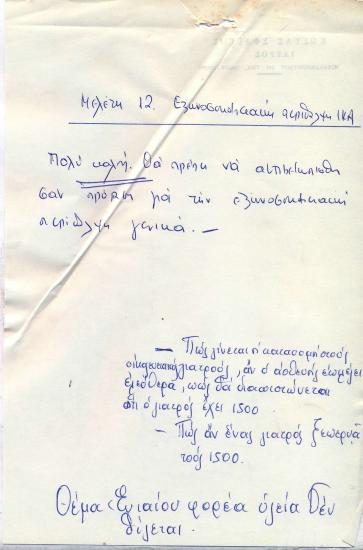 Μελέτη 12. Εξωνοσοκομειακή περίθαλψη ΙΚΑ
Πολύ καλή. Θα πρέπει νά αντιμετωπισθή
σαν πρόταση γιά την εξωνοσοκομειακή
περίθαλψη γενικά. —
— Πώς γίνεται η κατανομή στούς
οικογενειακούς γιατρούς, άν ο ασθενής επιλέγει
ελεύθερα, πως θα διαπιστώνεται
ότι ο γιατρός έχει 1500
— Πώς άν ένας γιατρός ξεπερνά
τούς 1500.
Θέμα Ενιαίου φορέα υγεία δέν
θίγεται.